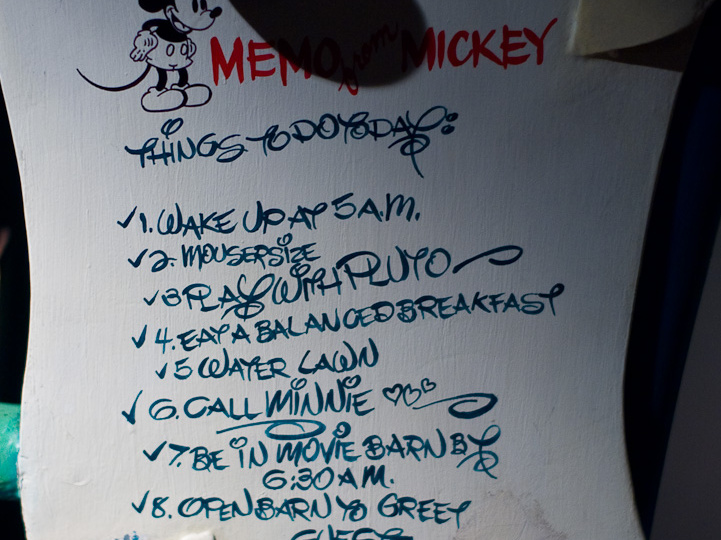 MEMO from MICKEY
THINGS TO DO TODAY:
✓1. WAKE UP AT 5 A.M.
✓2. MOUSERSIZE
✓3 PLAY WITH PLUTO
✓4. EAT A BALANCED BREAKFAST
✓5 WATER LAWN
✓6. CALL MINNIE ♡♡♡
✓7. BE IN MOVIE BARN BY
6:30 AM.
✓8. OPEN BARN TO GREET